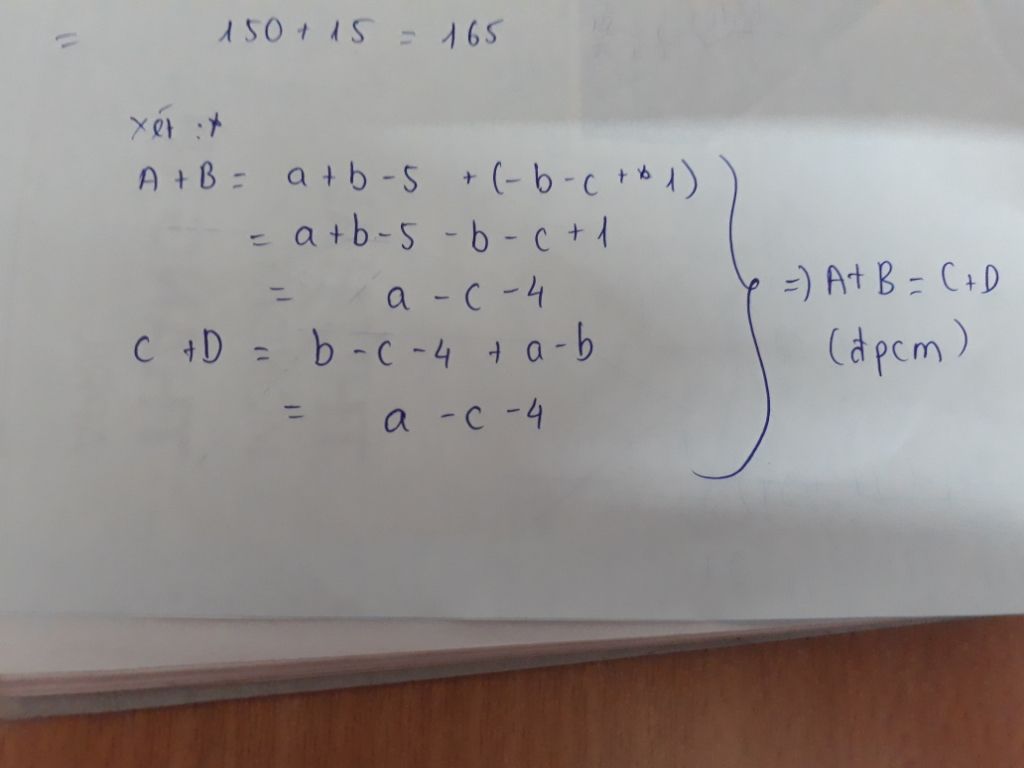 = 150 + 15 = 165
xét :*
A + B = a + b - 5 + (- b - c + 1)
= a + b - 5 - b - c + 1
= a - c - 4
C + D = b - c - 4 + a - b
= a - c - 4
=) A + B = C + D
(đpcm)